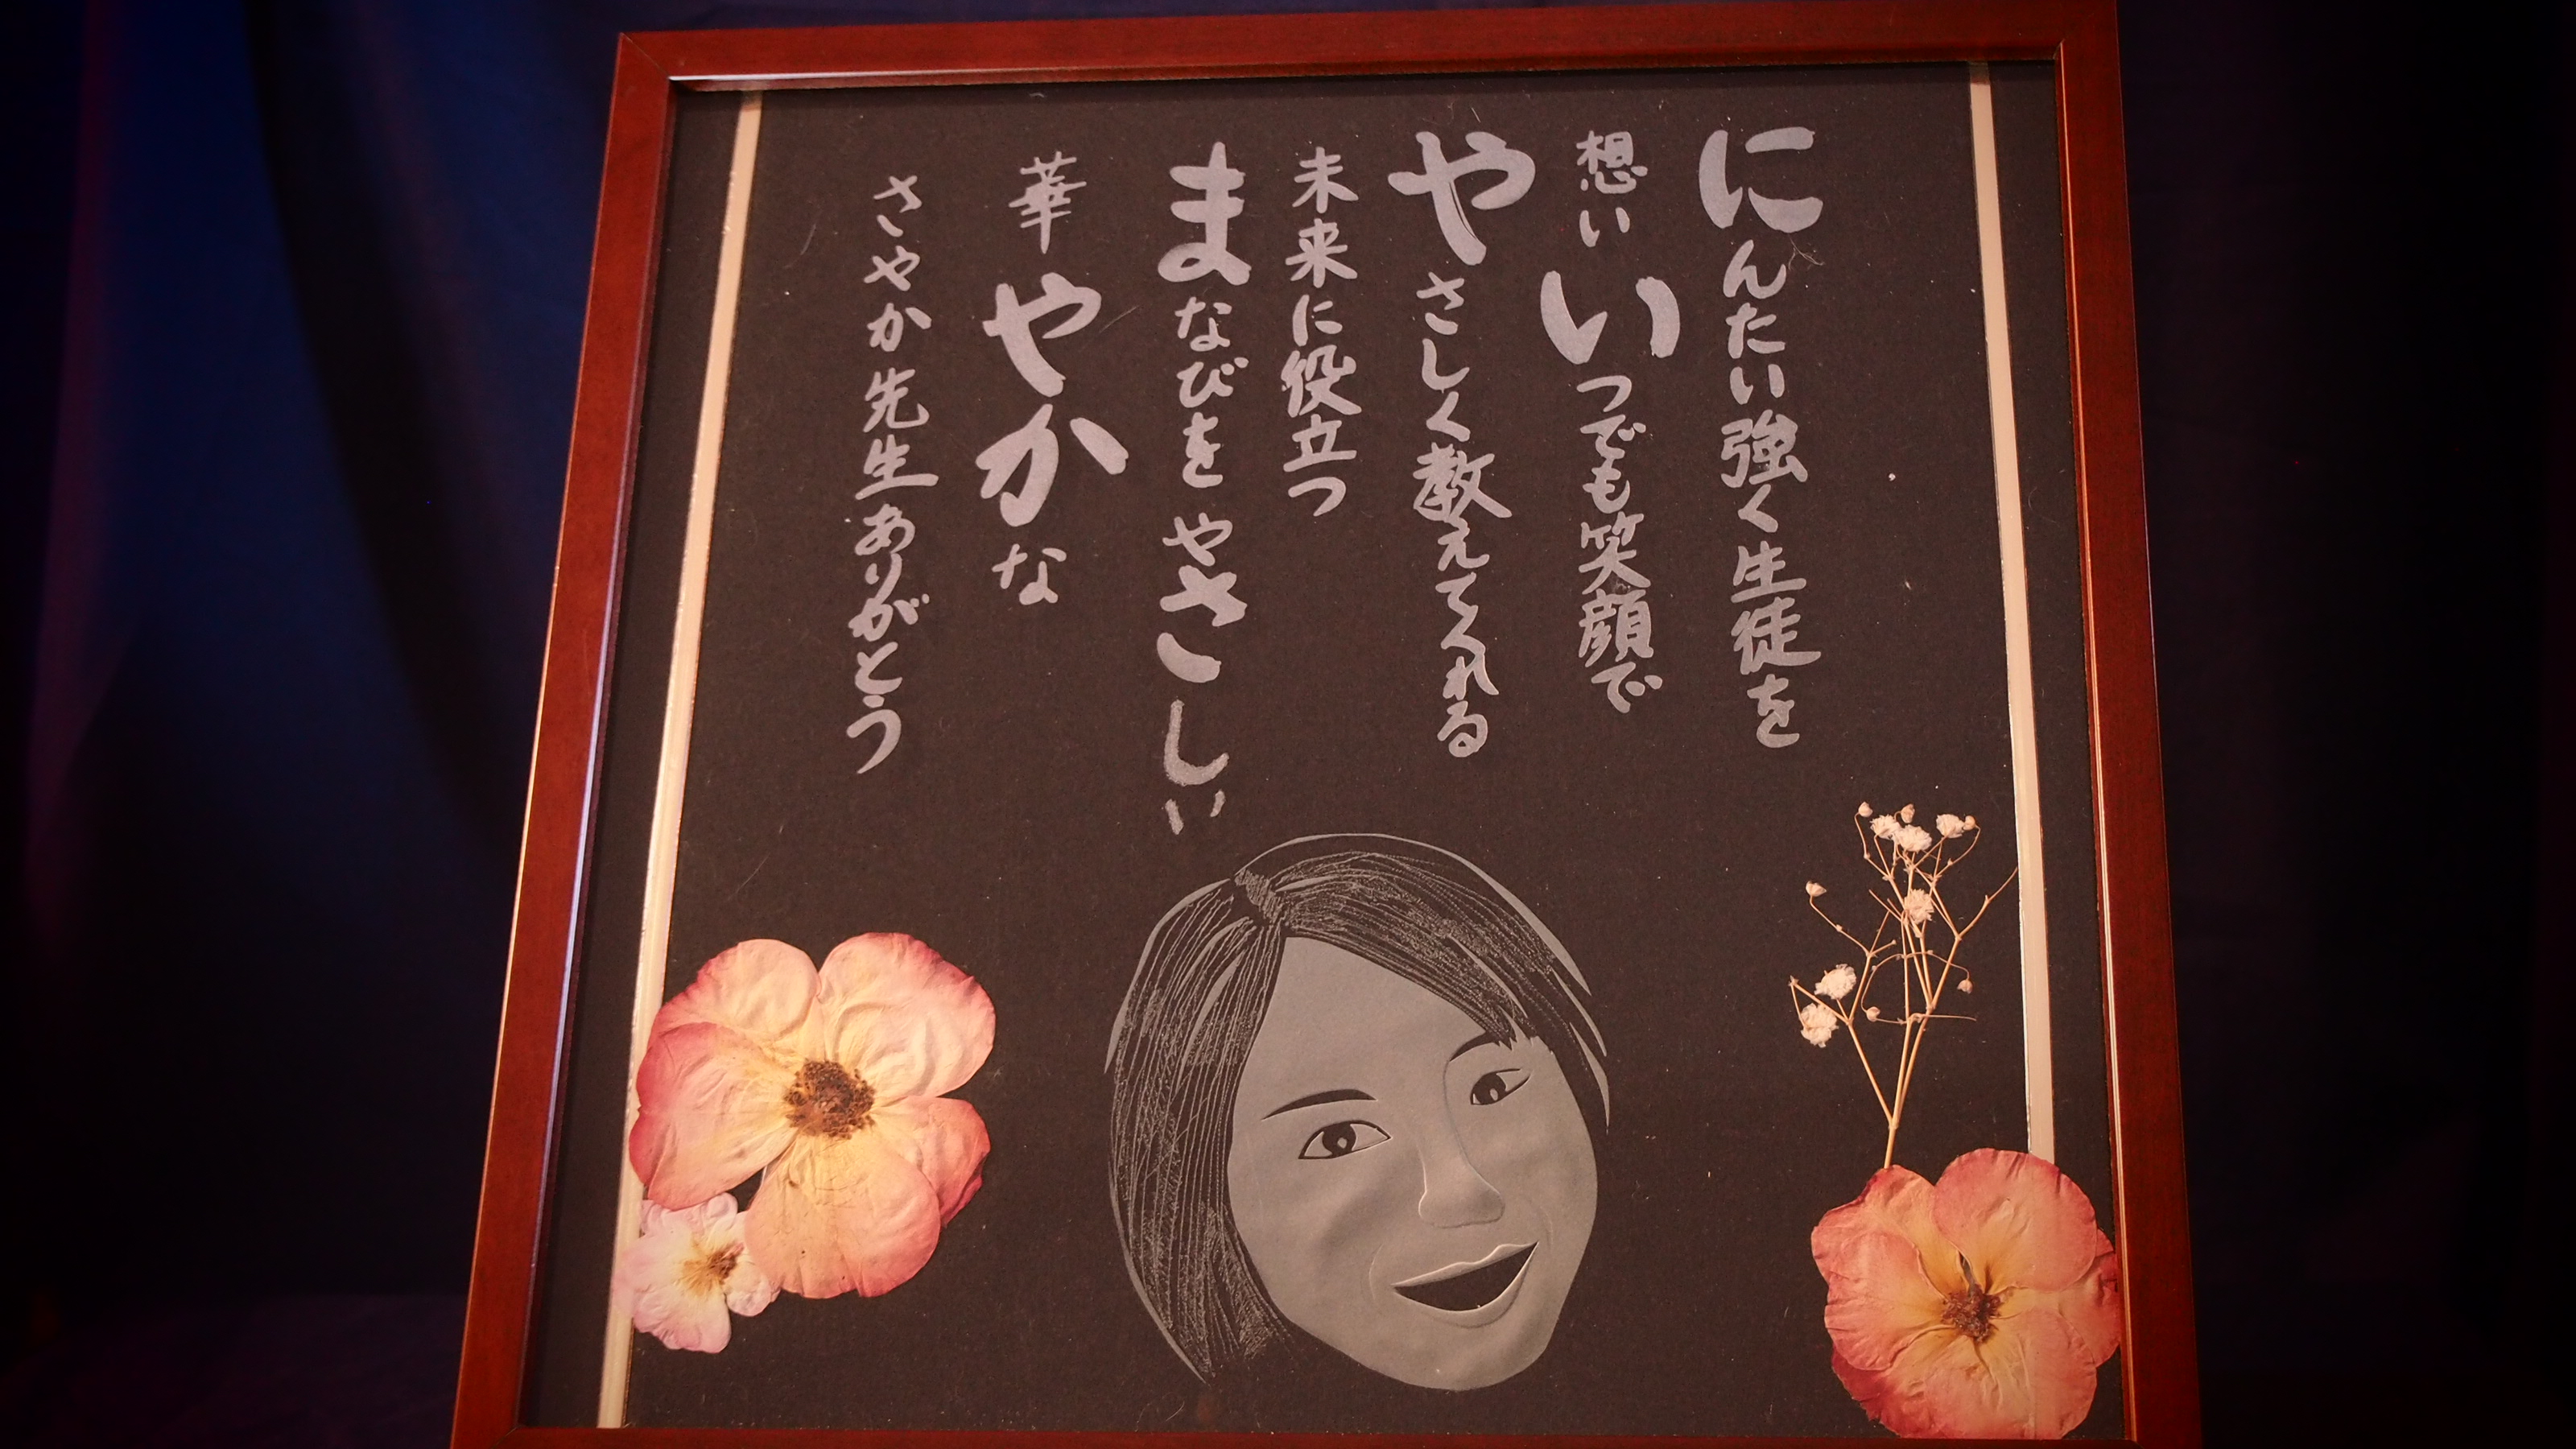 にんたい強く生徒を
想いいつでも笑顔で
やさしく教えてくれる
未来に役立つ
まなびをやさしい
華やかな
さやか先生ありがとう